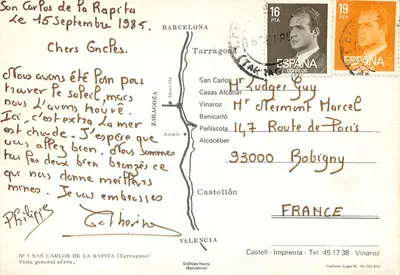 San Carlos de la Rapita
le 15 septembre 1985.
Chers Oncles.
Nous avons été loin pour
trouver le soleil, mais
nous l'avons trouvé.
Ici, c'est extra la mer
est chaude. J'espère que
vous allez bien. Nous sommes
tous les deux bien bronzés ce
qui nous donne meilleures
mines. Je vous embrasses
Philippe
Catherine
Nº 5 SAN CARLOS DE LA RAPITA (Tarragona)
Vista general aérea.
BARCELONA
Tarragona
San Carlos
Casas Alcanar
Vinaroz
Benicarló
Peñíscola
Alcocéber
Morella
ZARAGOZA
Alcalá
Castellón
VALENCIA
Gráficas Hanis
(Barcelona)
16
PTA
ESPAÑA
CORREOS
19
PTA
ESPAÑA
Mr Ludger Guy
Mr Nermont Marcel
147 Route de Paris
93000 Bobigny
FRANCE
Castell - Imprenta - Tel. 45 17 38 - Vinaroz